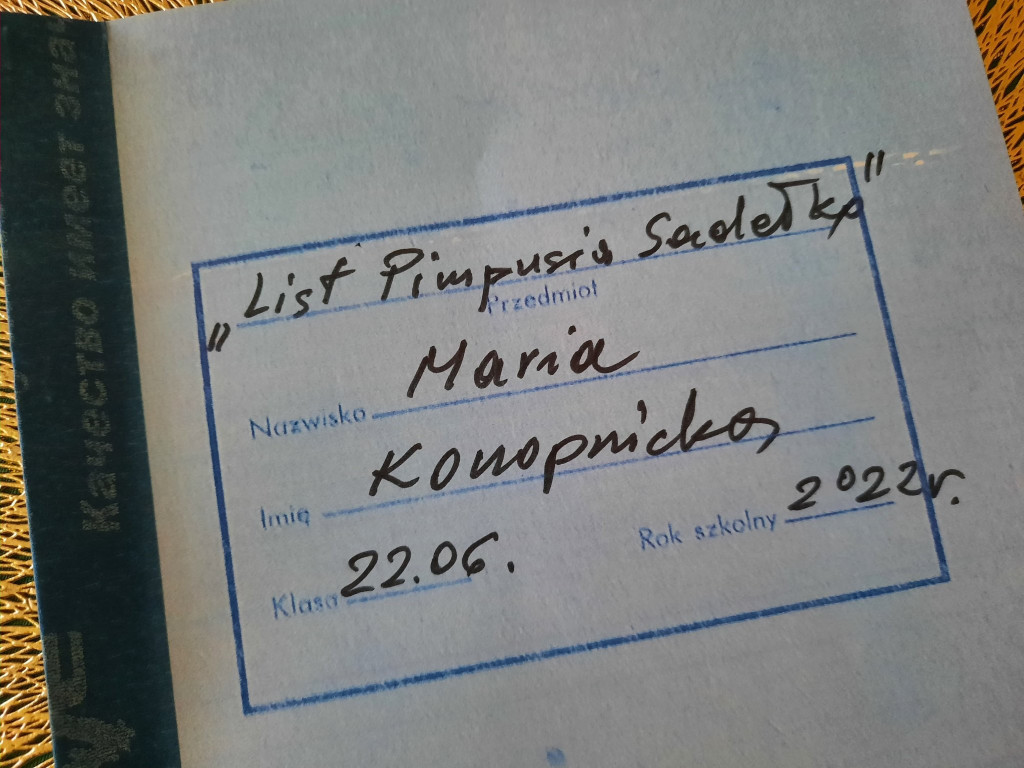 „List Pimpusia Sadełko"
Przedmiot
Maria
Nazwisko
Konopnicka
Imię
22.06.
Klasa
Rok szkolny 2022r.
Качество имеет зна